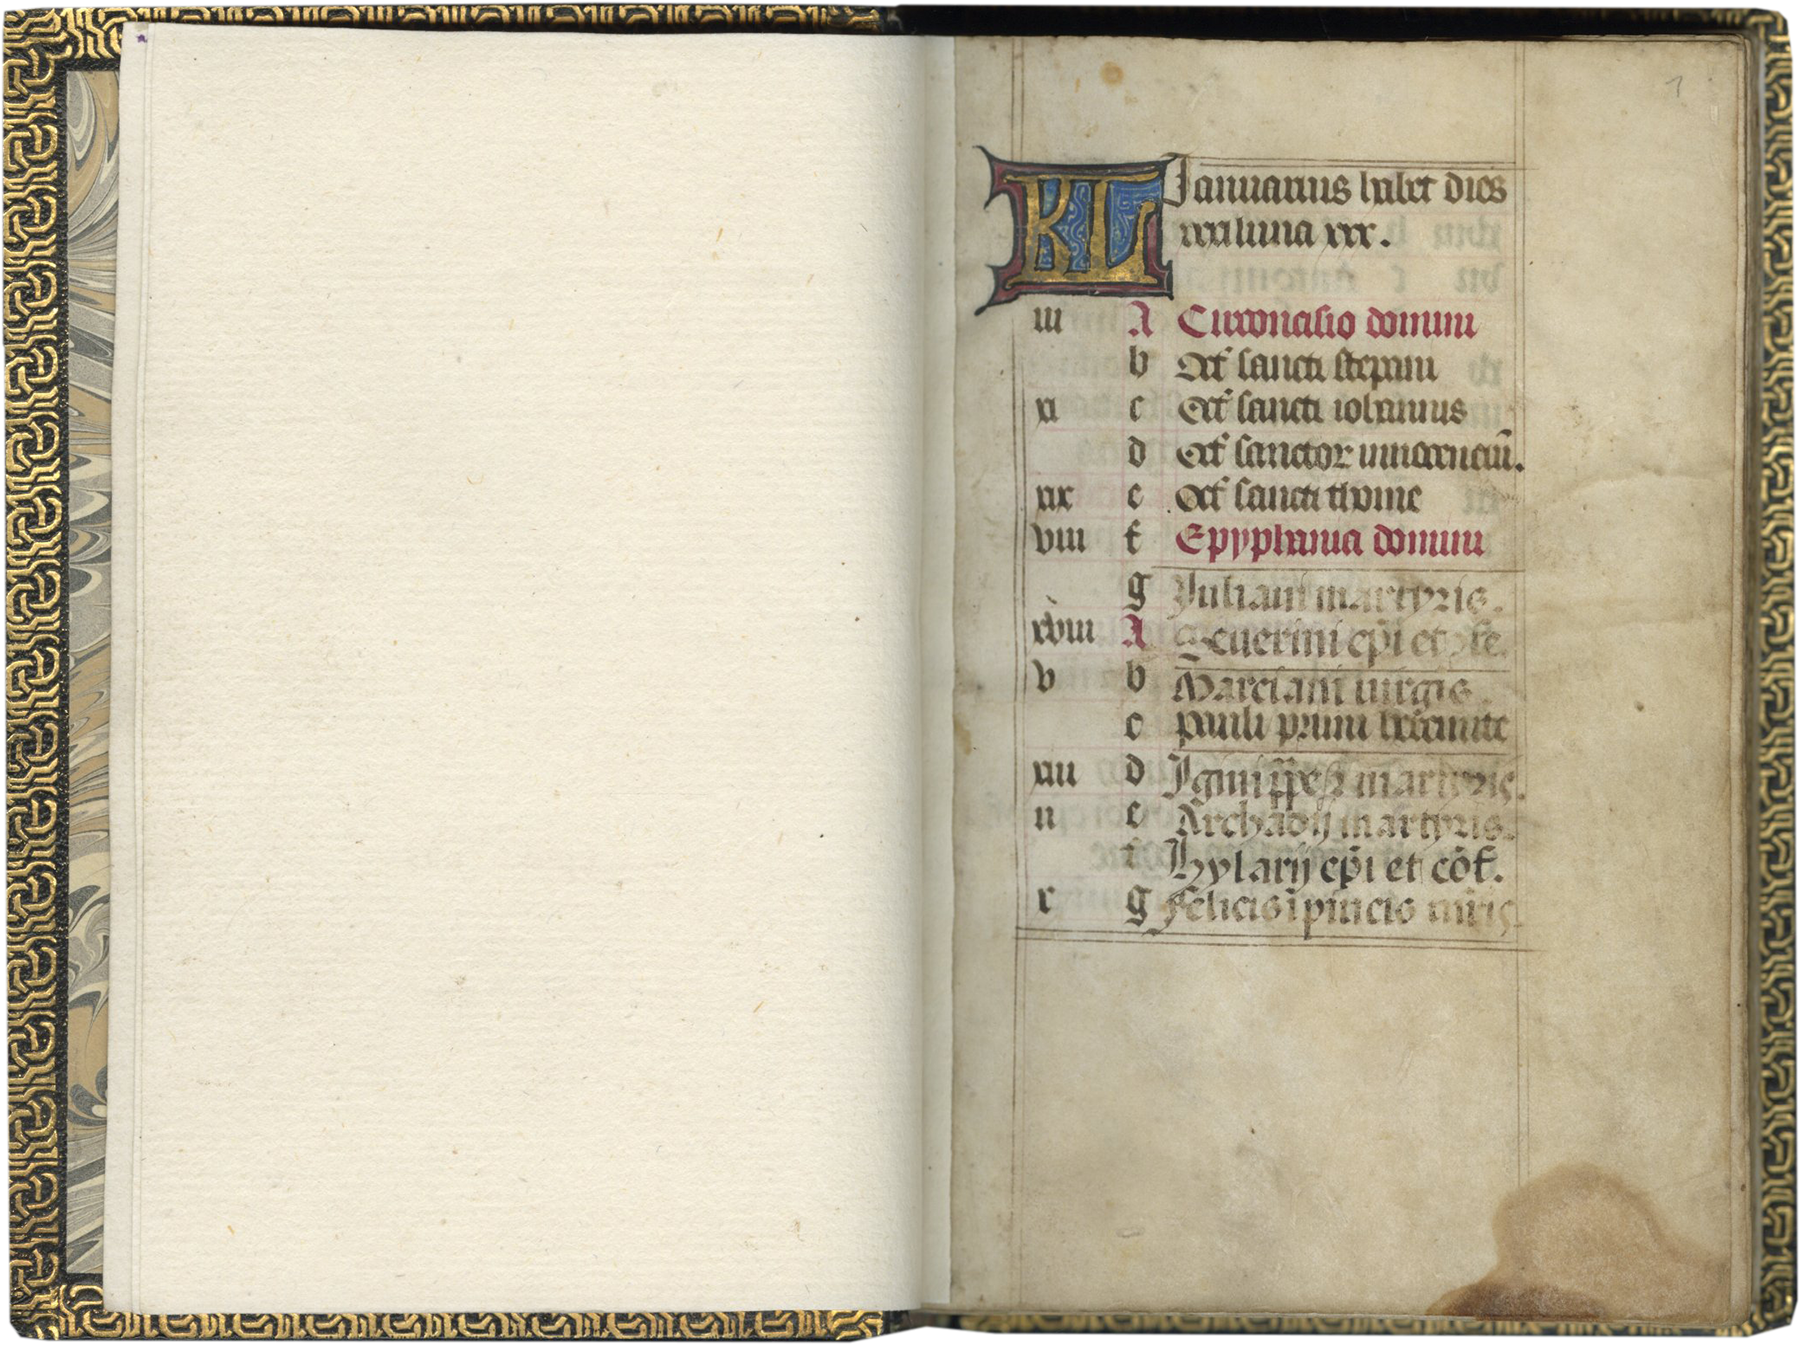 1
KL Januarius habet dies
xxxi luna xxx.
iii A Circoncisio domini
b Oct' sancti stephani
xi c Oct' sancti iohannis
d Oct' sanctor innocenciũ.
xix e Oct' sancti thome
viii f Epyphania domini
g Juliani martyris.
xviii A Seuerini ep̃i et
v b Marciani uirgis.
c pauli primi heremite
xiii d Igini martyris.
ii e Archadij martyris.
f Hylarij ep̃i et cõf.
x g Felicis ĩ pincis